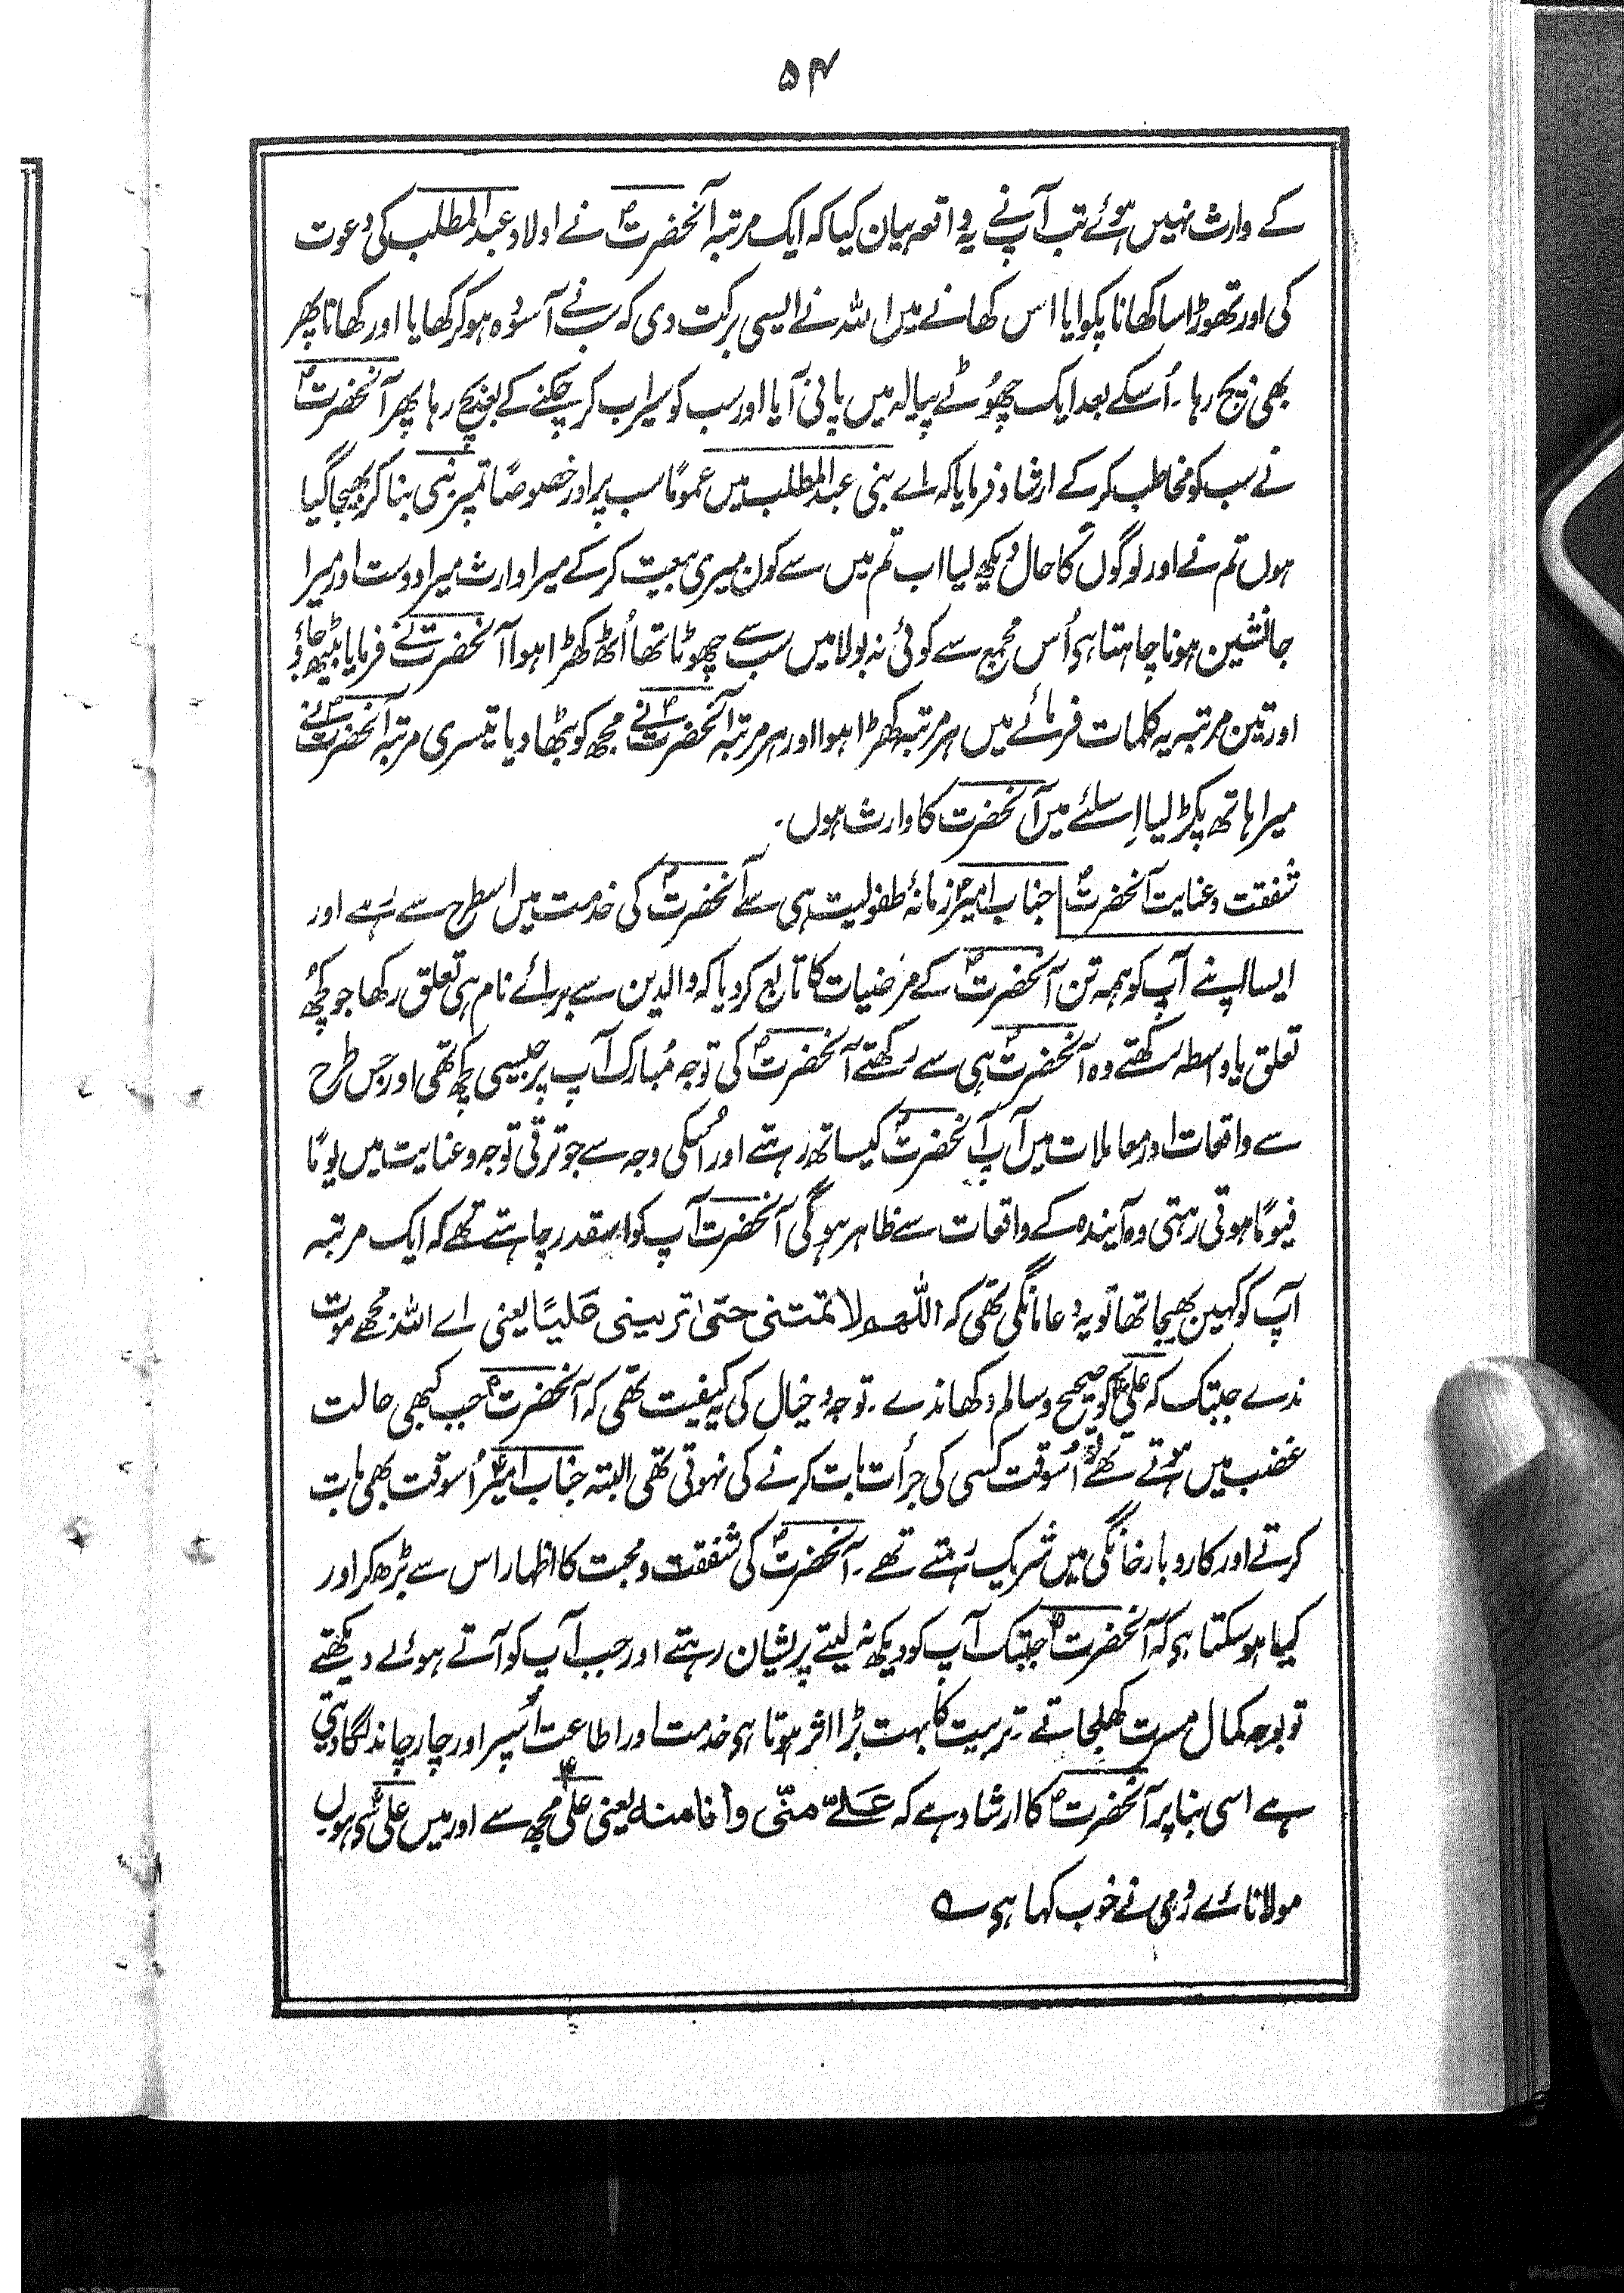 ۵۴
کے وارث نہیں ہوئے تب آپ نے یہ واقعہ بیان کیا کہ ایک مرتبہ آنحضرتؐ نے اولاد عبدالمطلب کی دعوت
کی اور تھوڑا سا کھانا پکوایا اس کھانے میں اللہ نے ایسی برکت دی کہ سب نے آسودہ ہو کر کھایا اور کھانا پھر
بھی بچ رہا۔ اُسکے بعد ایک چھوٹے پیالہ میں پانی آیا اور سب کو سیراب کر چکنے کے بعد بچ رہا پھر آنحضرتؐ
نے سب کو مخاطب کر کے ارشاد فرمایا کہ اے بنی عبدالمطلب میں عموماً سب پر اور خصوصاً تمپر نبی بنا کر بھیجا گیا
ہوں تم نے اور لوگوں کا حال دیکھ لیا اب تم میں سے کون میری بیعت کر کے میرا وارث میرا دوست اور میرا
جانشین ہونا چاہتا ہی اُس مجمع سے کوئی نہ بولا میں سب سے چھوٹا تھا اُٹھ کھڑا ہوا آنحضرتؐ نے فرمایا بیٹھ جاؤ
اور تین مرتبہ یہ کلمات فرمائے میں ہر مرتبہ کھڑا ہوا اور ہر مرتبہ آنحضرتؐ نے مجھ کو بٹھا دیا تیسری مرتبہ آنحضرتؐ نے
میرا ہاتھ پکڑ لیا اِسلئے میں آنحضرت کا وارث ہوں۔
شفقت و عنایت آنحضرتؐ جناب امیرؑ زمانۂ طفولیت ہی سے آنحضرتؐ کی خدمت میں اسطرح سے رہے اور
ایسا اپنے آپ کو ہمہ تن آنحضرتؐ کے مرضیات کا تابع کر دیا کہ والدین سے برائے نام ہی تعلق رکھا جو کچھ
تعلق یا واسطہ رکھتے وہ آنحضرتؐ ہی سے رکھتے آنحضرتؐ کی توجہ مُبارک آپ پر جیسی کچھ تھی اور جس طرح
سے واقعات اور معاملات میں آپ آنحضرتؐ کیساتھ رہتے اور اُسکی وجہ سے جو ترقی توجہ و عنایت میں یوماً
فیوماً ہوتی رہتی وہ آیندہ کے واقعات سے ظاہر ہو گی آنحضرت آپ کو اسقدر چاہتے تھے کہ ایک مرتبہ
آپ کو کہیں بھیجا تھا تو یہ دعا مانگی تھی کہ اللھم لا تمتنی حتیٰ ترینی علیًا یعنی اے اللہ مجھے موت
ندے جبتک کہ علیؑ کو صحیح و سالم دکھا ندے۔ توجہ و خیال کی یہ کیفیت تھی کہ آنحضرتؐ جب کبھی حالت
غضب میں ہوتے تھے تو اُسوقت کسی کی جرأت بات کرنے کی نہوتی تھی البتہ جناب امیرؑ اُسوقت بھی بات
کرتے اور کاروبار خانگی میں شریک رہتے تھے۔ آنحضرتؐ کی شفقت و محبت کا اظہار اس سے بڑھ کر اور
کیا ہو سکتا ہی کہ آنحضرتؐ جبتک آپ کو دیکھ نہ لیتے پریشان رہتے اور جب آپ کو آتے ہوئے دیکھتے
تو بوجہ کمال مسرت کھلجاتے۔ تربیت کا بہت بڑا اثر ہوتا ہی خدمت اور اطاعت اُسپر اور چار چاند لگا دیتی
ہے اسی بنا پر آنحضرتؐ کا ارشاد ہے کہ عَلیٌّ منّی وأنا منہ یعنی علیؑ مجھ سے اور میں علیؑ سے ہوں
مولانائے رُومی نے خوب کہا ہی ؎